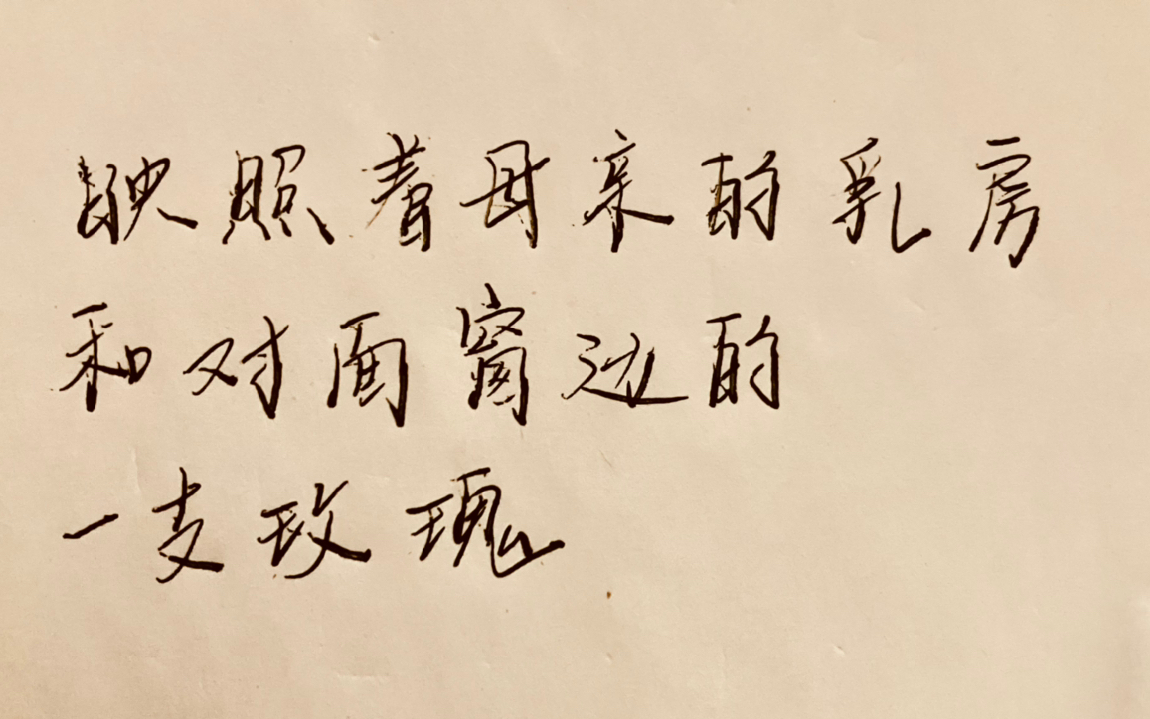 映照着母亲的乳房
和对面窗边的
一支玫瑰